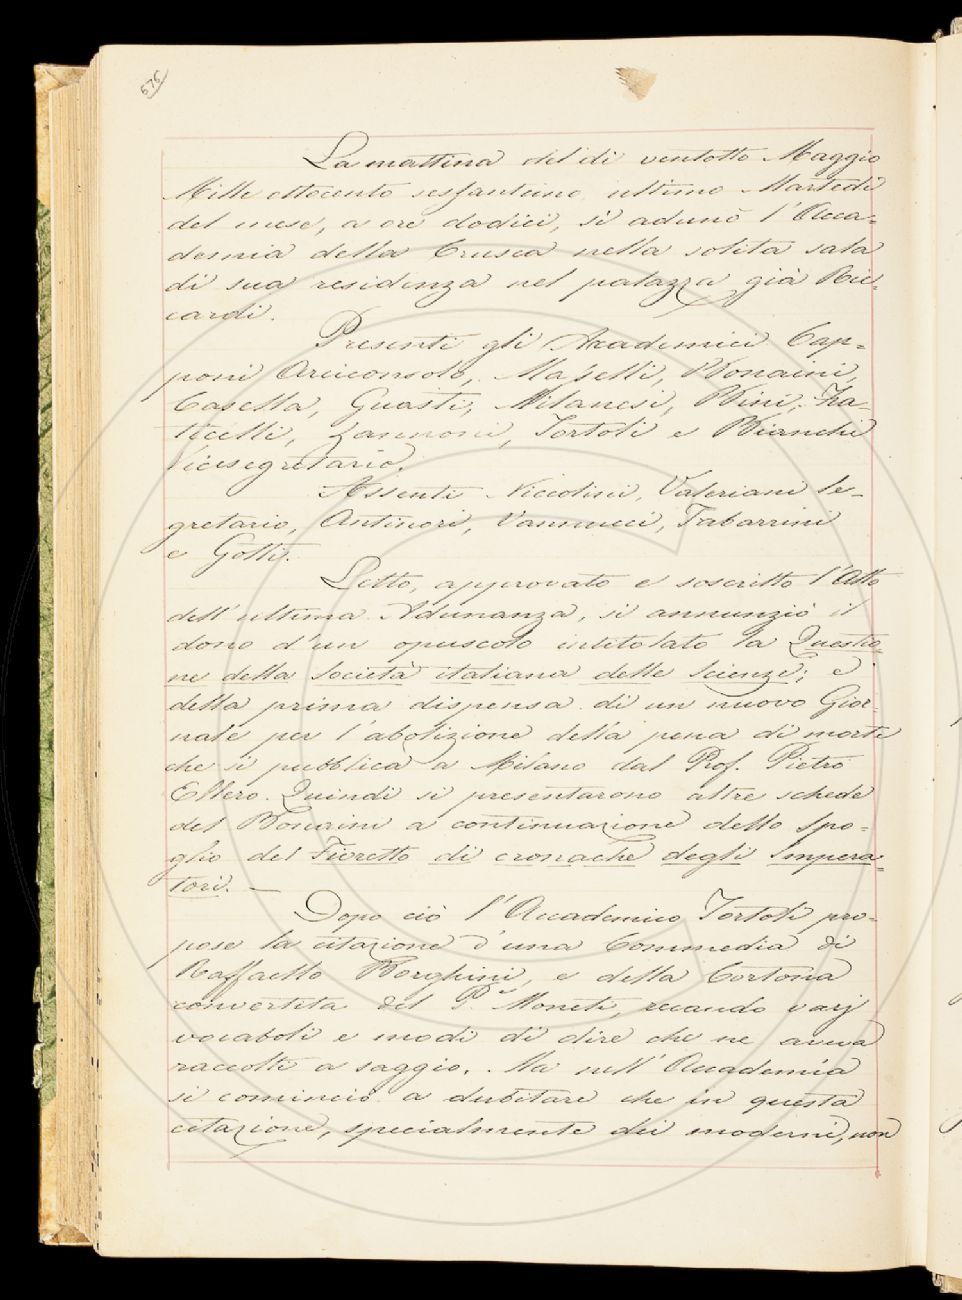 576
La mattina del dì ventotto Maggio
Mille ottocento sessantuno, ultimo Martedì
del mese, a ore dodici, si adunò l'Acca-
demia della Crusca nella solita sala
di sua residenza nel palazzo già Ric-
cardi.
Presenti gli Accademici Cap-
poni Arciconsolo, Maselli, Bonaini,
Casella, Guasti, Milanesi, Bini, Fra-
ticelli, Zannoni, Tortoli e Bianchi
Vicesegretario.
Assenti Niccolini, Valeriani Se-
gretario, Antinori, Vannucci, Tabarrini
e Gotti.
Letto, approvato e soscritto l'Atto
dell'ultima Adunanza, si annunziò il
dono d'un opuscolo intitolato la Questio-
ne della Società italiana delle Scienze; e
della prima dispensa di un nuovo Gior-
nale per l'abolizione della pena di morte
che si pubblica a Milano dal Prof. Pietro
Ellero. Quindi si presentarono altre schede
del Bonaini a continuazione dello Spo-
glio del Fioretto di cronache degli Impera-
tori. —
Dopo ciò l'Accademico Tortoli pro-
pose la citazione d'una Commedia di
Raffaello Borghini, e della Cortona
convertita del P.e Moneti, recando varj
vocaboli e modi di dire che ne avea
raccolti a saggio. Ma nell'Accademia
si cominciò a dubitare che in questa
citazione, specialmente dei moderni, non